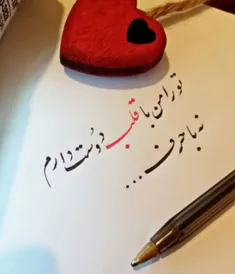 تو را من با قلب دوست دارم
نه با حرف ...